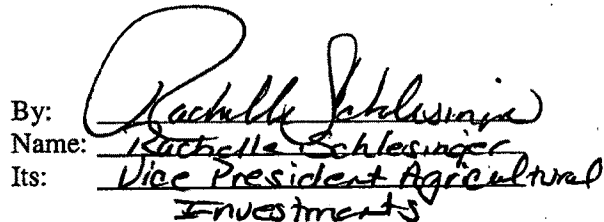 By: Rachelle Schlesinger
Name: Rachelle Schlesinger
Its: Vice President Agricultural
Investments